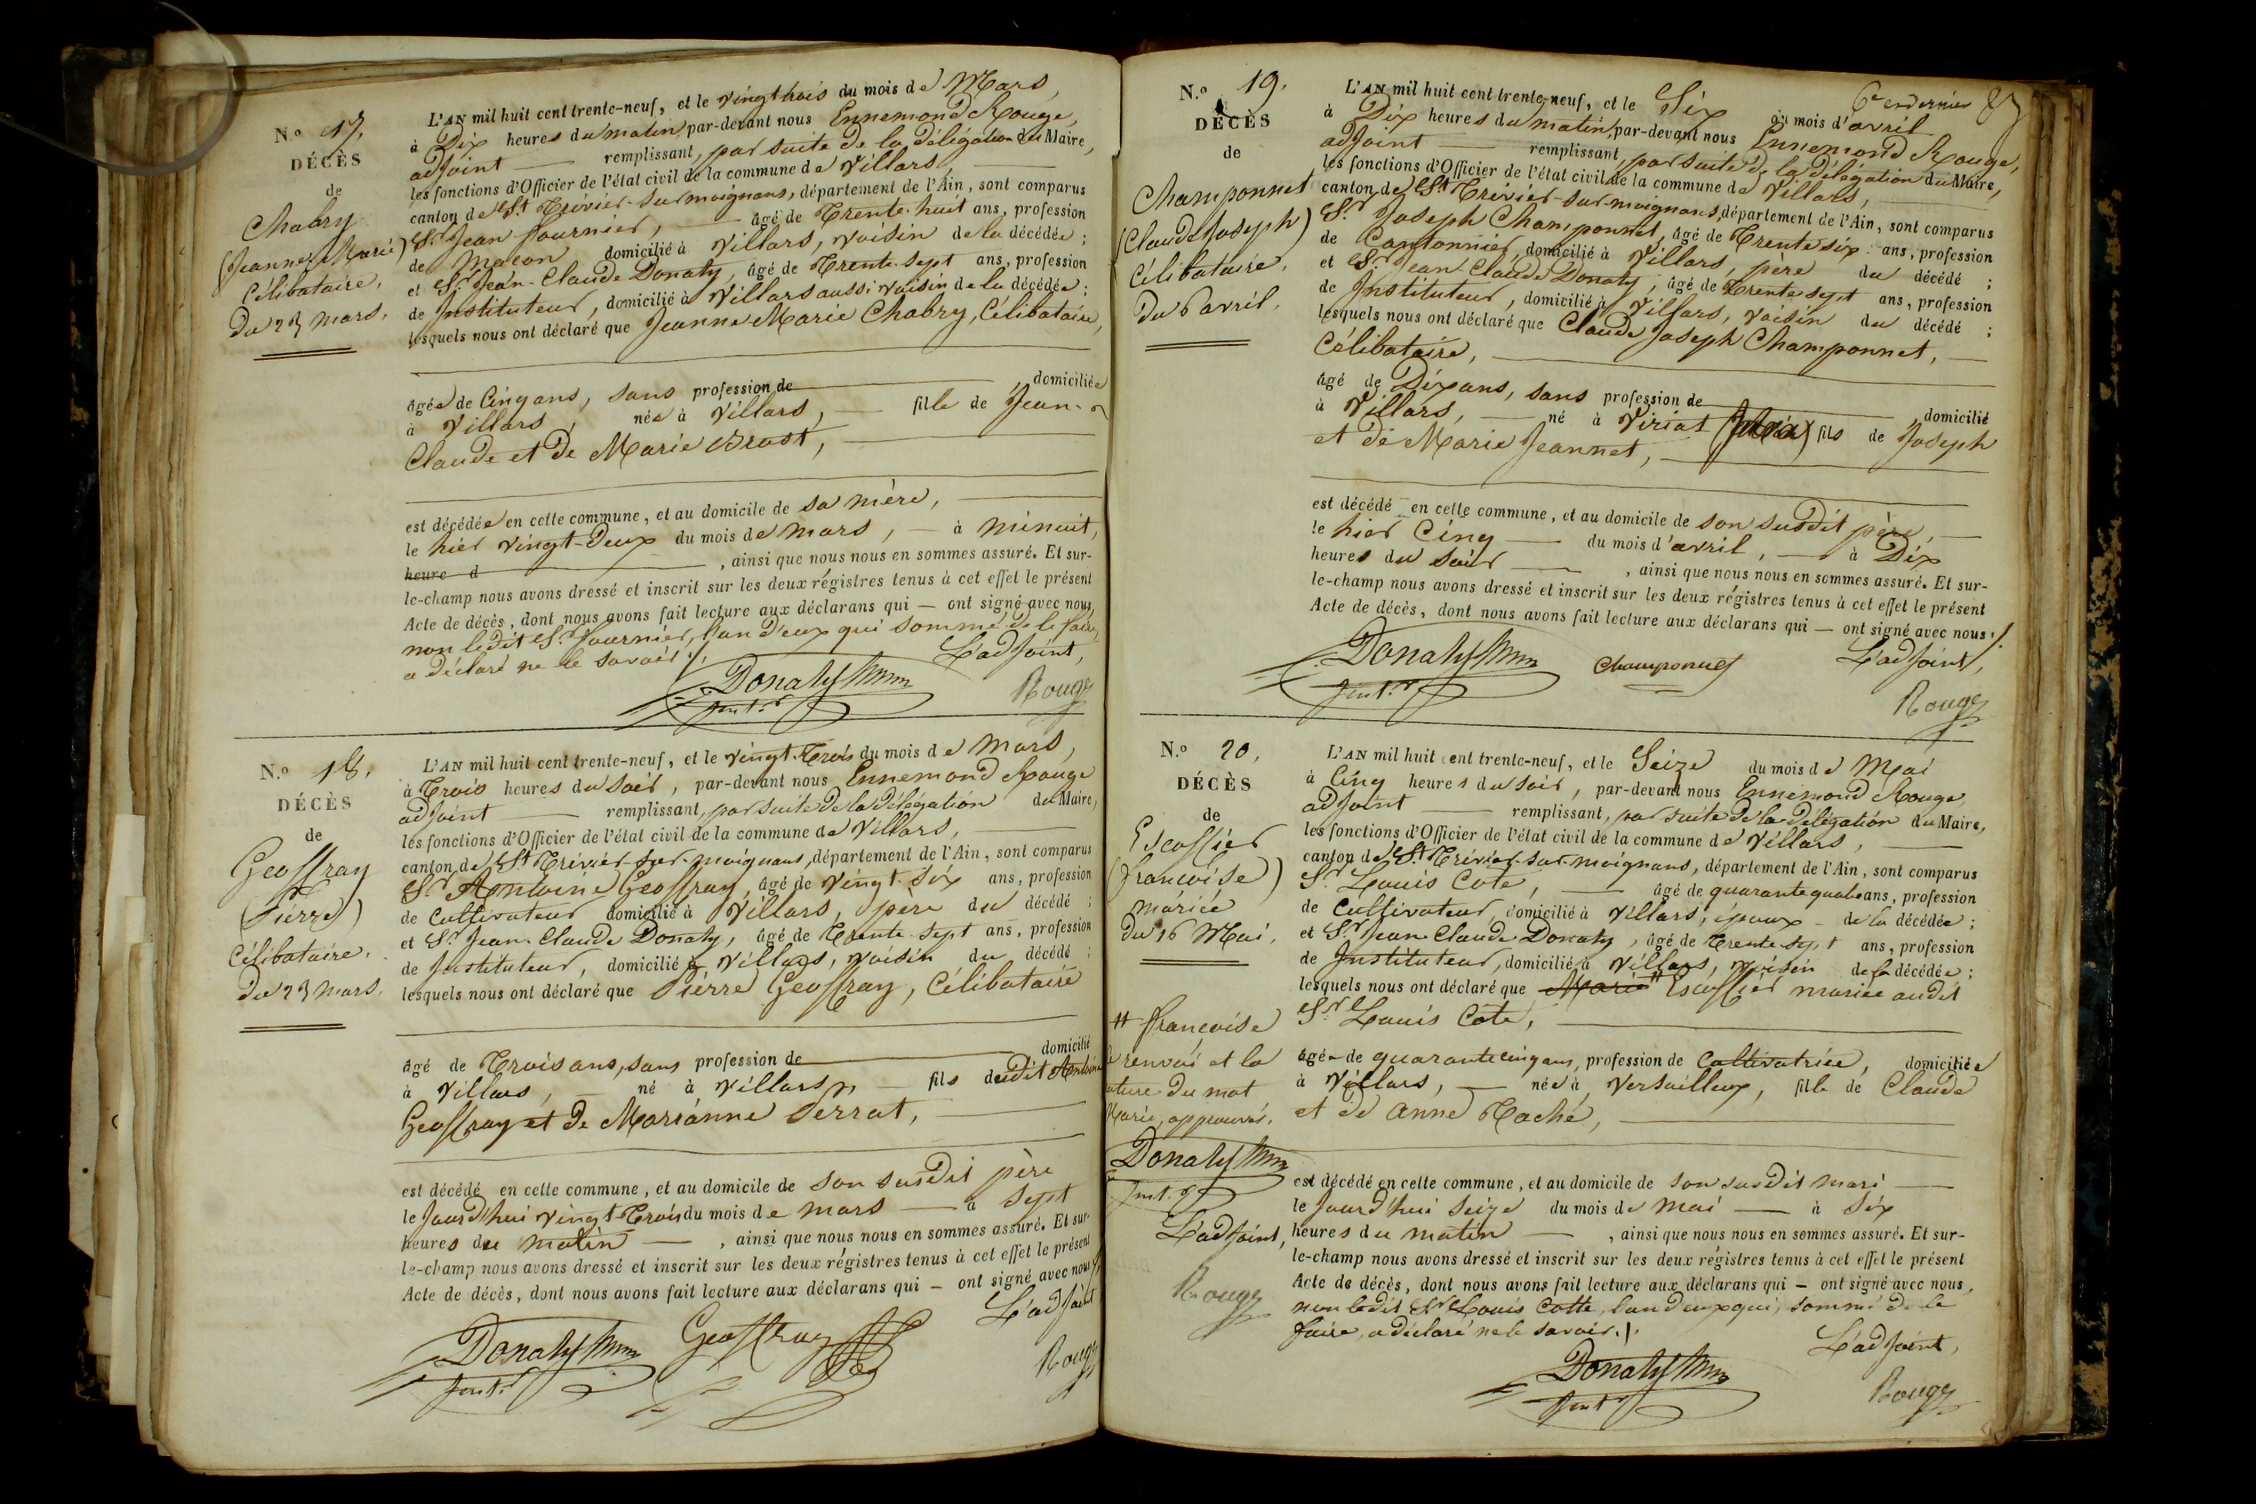 N.º 17.
DÉCÈS
de
Chabry
(Jeanne Marie)
Célibataire.
Du 23 mars.
L'AN mil huit cent trente-neuf, et le vingt trois du mois de Mars,
à Dix heures du matin par-devant nous Ennemond Rouge,
adjoint — remplissant, par suite de la délégation du Maire,
les fonctions d'Officier de l'état civil de la commune de Villars,
canton de St Trivier-sur-moignans, département de l'Ain, sont comparus
Sr. Jean fournier, — âgé de Trente-huit ans, profession
de macon domicilié à Villars, voisin de la décédée;
et Sr. Jean-Claude Donaty, âgé de Trente-sept ans, profession
de Instituteur, domicilié à Villars aussi voisin de la décédée;
lesquels nous ont déclaré que Jeanne Marie Chabry, Célibataire,
âgée de Cinq ans, sans profession de — domiciliée
à Villars, née à Villars, — fille de Jean-
Claude et de Marie Brost,
est décédée en cette commune, et au domicile de sa mère,
le hier vingt-deux du mois de mars, — à minuit,
heure d — , ainsi que nous nous en sommes assuré. Et sur-
le-champ nous avons dressé et inscrit sur les deux régistres tenus à cet effet le présent
Acte de décès, dont nous avons fait lecture aux déclarans qui — ont signé avec nous,
non ledit Sr. fournier, l'un d'eux qui sommé de le faire,
a déclaré ne le savoir./.
L'adjoint,
Donaty
Inst.r
Rouge
N.º 18.
DÉCÈS
de
Geoffray
(Pierre)
Célibataire.
Du 23 mars.
L'AN mil huit cent trente-neuf, et le vingt-Trois du mois de Mars,
à Trois heures du soir, par-devant nous Ennemond Rouge
adjoint — remplissant, par suite de la délégation du Maire,
les fonctions d'Officier de l'état civil de la commune de Villars,
canton de St Trivier-sur-moignans, département de l'Ain, sont comparus
Sr. Antoine Geoffray, âgé de vingt-six ans, profession
de Cultivateur domicilié à Villars, père du décédé;
et Sr. Jean-Claude Donaty, âgé de Trente-sept ans, profession
de Instituteur, domicilié à Villars, voisin du décédé;
lesquels nous ont déclaré que Pierre Geoffray, Célibataire
âgé de Trois ans, sans profession de — domicilié
à Villars, — né à Villars, — fils dudit Antoine
Geoffray et de Marianne Perrat,
est décédé en cette commune, et au domicile de son susdit père
le Jourd'hui vingt-Trois du mois de mars — à sept
heures du matin — , ainsi que nous nous en sommes assuré. Et sur-
le-champ nous avons dressé et inscrit sur les deux régistres tenus à cet effet le présent
Acte de décès, dont nous avons fait lecture aux déclarans qui — ont signé avec nous
L'adjoint
Donaty
Inst.r
Geoffray
Rouge
6e et dernier
N.º 19.
DÉCÈS
de
Champonnet
(Claude Joseph)
Célibataire.
Du 6 avril.
L'AN mil huit cent trente-neuf, et le Six du mois d'avril
à Dix heures du matin, par-devant nous Ennemond Rouge,
adjoint — remplissant, par suite de la délégation du Maire,
les fonctions d'Officier de l'état civil de la commune de Villars,
canton de St Trivier-sur-moignans, département de l'Ain, sont comparus
Sr. Joseph Champonnet, âgé de Trente six ans, profession
de Cantonnier, domicilié à Villars, père du décédé;
et Sr. Jean-Claude Donaty, âgé de Trente sept ans, profession
de Instituteur, domicilié à Villars, voisin du décédé;
lesquels nous ont déclaré que Claude Joseph Champonnet,
Célibataire,
âgé de Dix ans, sans profession de — domicilié
à Villars, — né à Viriat fils de Joseph
et de Marie Jeannet,
est décédé en cette commune, et au domicile de son susdit père,
le hier Cinq — du mois d'avril, — à Dix
heures du soir — , ainsi que nous nous en sommes assuré. Et sur-
le-champ nous avons dressé et inscrit sur les deux régistres tenus à cet effet le présent
Acte de décès, dont nous avons fait lecture aux déclarans qui — ont signé avec nous./.
L'adjoint,
Donaty
Inst.r
Champonnet
Rouge
N.º 20.
DÉCÈS
de
Escoffier
(françoise)
mariée
Du 16 Mai.
# françoise
renvoi et la
rature du mot
Marie, approuvés.
Donaty
Inst.r
L'adjoint,
Rouge
L'AN mil huit cent trente-neuf, et le Seize du mois de Mai
à Cinq heures du soir, par-devant nous Ennemond Rouge
adjoint — remplissant, par suite de la délégation du Maire,
les fonctions d'Officier de l'état civil de la commune de Villars,
canton de St Trivier-sur-moignans, département de l'Ain, sont comparus
Sr. Louis Cote, — âgé de quarante quatre ans, profession
de Cultivateur, domicilié à Villars, époux de la décédée;
et Sr. Jean-Claude Donaty, âgé de Trente-sept ans, profession
de Instituteur, domicilié à Villars, voisin de la décédée;
lesquels nous ont déclaré que Marie # Escoffier mariée audit
Sr. Louis Cote,
âgée de quarante cinq ans, profession de Cultivatrice, domiciliée
à Villars, — née à Versailleux, fille de Claude
et de Anne Taché,
est décédé en cette commune, et au domicile de son susdit mari
le Jourd'hui Seize du mois de mai — à six
heures du matin — , ainsi que nous nous en sommes assuré. Et sur-
le-champ nous avons dressé et inscrit sur les deux régistres tenus à cet effet le présent
Acte de décès, dont nous avons fait lecture aux déclarans qui — ont signé avec nous,
non ledit Sr. Louis Cotte, l'un d'eux qui, sommé de le
faire, a déclaré ne le savoir./.
L'adjoint,
Donaty
Inst.r
Rouge